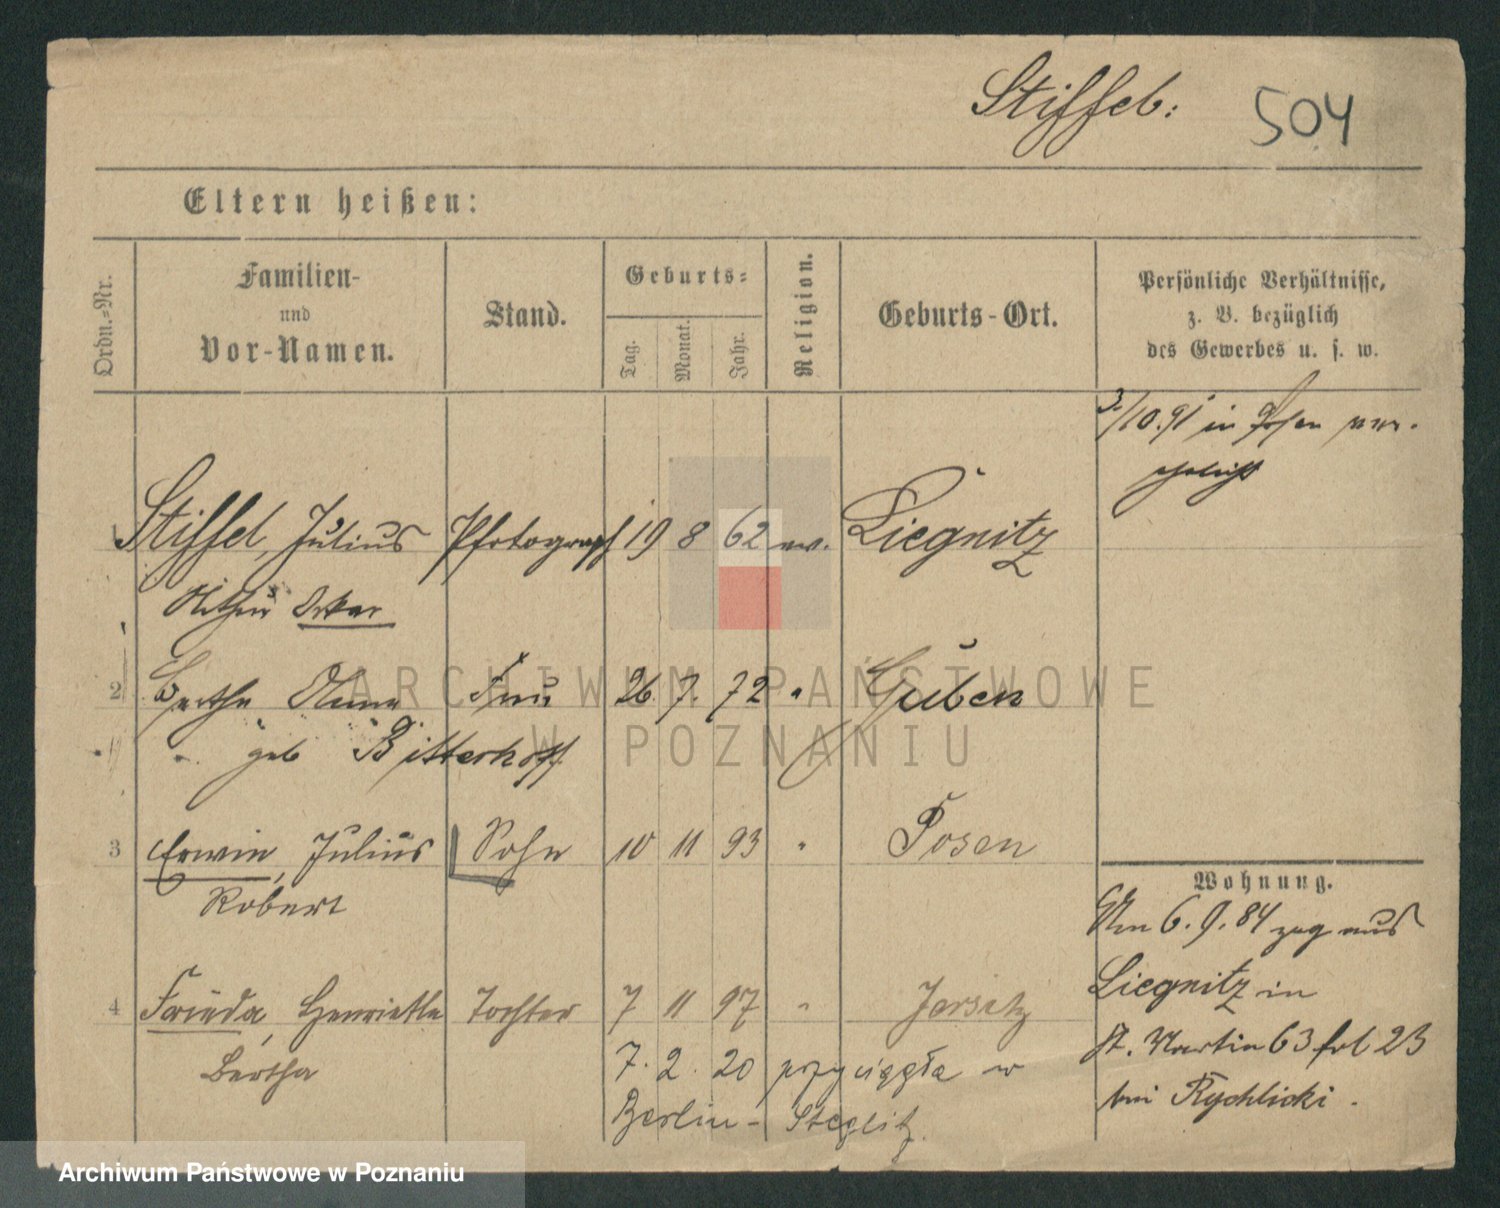 Stiffel:
504
Eltern heißen:
Ordn.-Nr.
Familien-
und
Vor-Namen.
Stand.
Geburts-
Tag.
Monat.
Jahr.
Religion.
Geburts-Ort.
Persönliche Verhältnisse,
z. B. bezüglich
des Gewerbes u. s. w.
3./10.91 in Posen ver-
ehelicht
1 Stiffel, Julius Photograph 19 8 62 ev. Liegnitz
Arthur Oskar
2 Bertha Anna Frau 26. 7. 72 " Guben
geb Bitterhoff
3 Erwin, Julius Sohn 10 11 93 " Posen
Robert
4 Frieda, Henriette Tochter 7 11 97 " Jersitz
Bertha
7. 2. 20 w
Berlin-Steglitz
Wohnung.
Am 6. 9. 84 zog aus
Liegnitz in
St. Martin 63 frl 23
bei Rychlicki.
ARCHIWUM PAŃSTWOWE
W POZNANIU
Archiwum Państwowe w Poznaniu